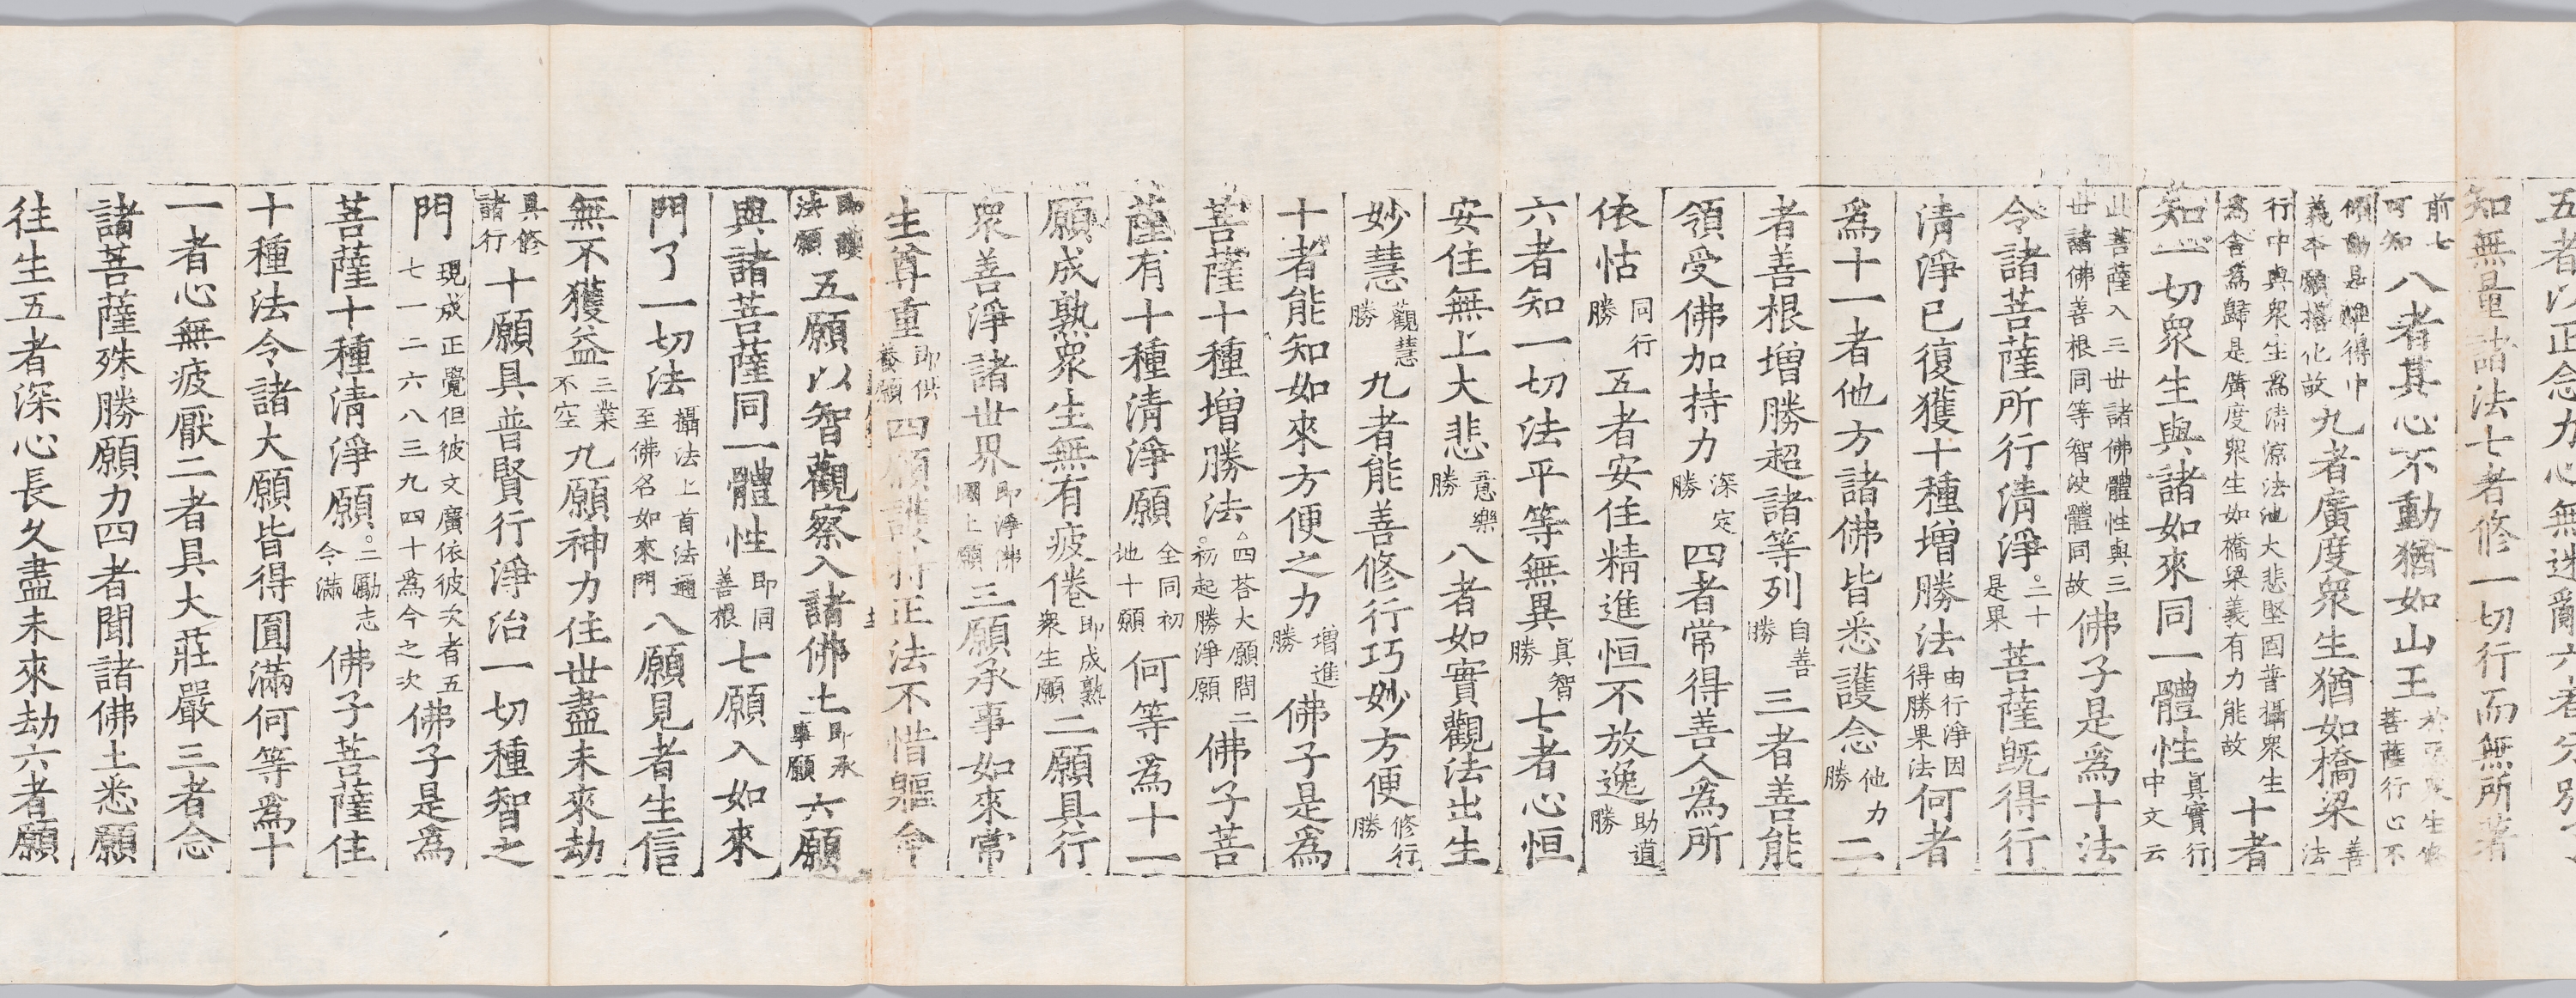 五者以正念力心無迷亂六者分別了
知無量諸法七者修一切行而無所著
前七可知八者其心不動猶如山王於下衆生修菩薩行心不
傾動是難得中義本願攝化故九者廣度眾生猶如橋梁善法
行中與衆生為清涼法池大悲堅固普攝衆生為舍為歸是廣度衆生如橋梁義有力能故十者
知一切眾生與諸如來同一體性真實行中文云
此菩薩入三世諸佛體性與三世諸佛善根同等智波體同故佛子是為十法
令諸菩薩所行清淨。二十是果菩薩旣得行
清淨已復獲十種增勝法由行淨因得勝果法何者
為十一者他方諸佛皆悉護念他力勝二
者善根增勝超諸等列自善勝三者善能
領受佛加持力深定勝四者常得善人為所
依怙同行勝五者安住精進恒不放逸助道勝
六者知一切法平等無異真智勝七者心恒
安住無上大悲意樂勝八者如實觀法出生
妙慧觀慧勝九者能善修行巧妙方便修行勝
十者能知如來方便之力增進勝佛子是為
菩薩十種增勝法△四荅大願問二。初起勝淨願佛子菩
薩有十種清淨願全同初地十願何等為十一
願成熟眾生無有疲倦即成熟衆生願二願具行
眾善淨諸世界即淨佛國土願三願承事如來常
生尊重即供養願四願護持正法不惜軀命
即護法願五願以智觀察入諸佛土即承事願六願
與諸菩薩同一體性即同善根七願入如來
門了一切法攝法上首法通至佛名如來門八願見者生信
無不獲益三業不空九願神力住世盡未來劫
具修諸行十願具普賢行淨治一切種智之
門現成正覺但彼文廣依彼次者五七一二六八三九四十為今之次佛子是為
菩薩十種清淨願。二勵志令滿佛子菩薩住
十種法令諸大願皆得圓滿何等為十
一者心無疲厭二者具大莊嚴三者念
諸菩薩殊勝願力四者聞諸佛土悉願
往生五者深心長久盡未來劫六者願